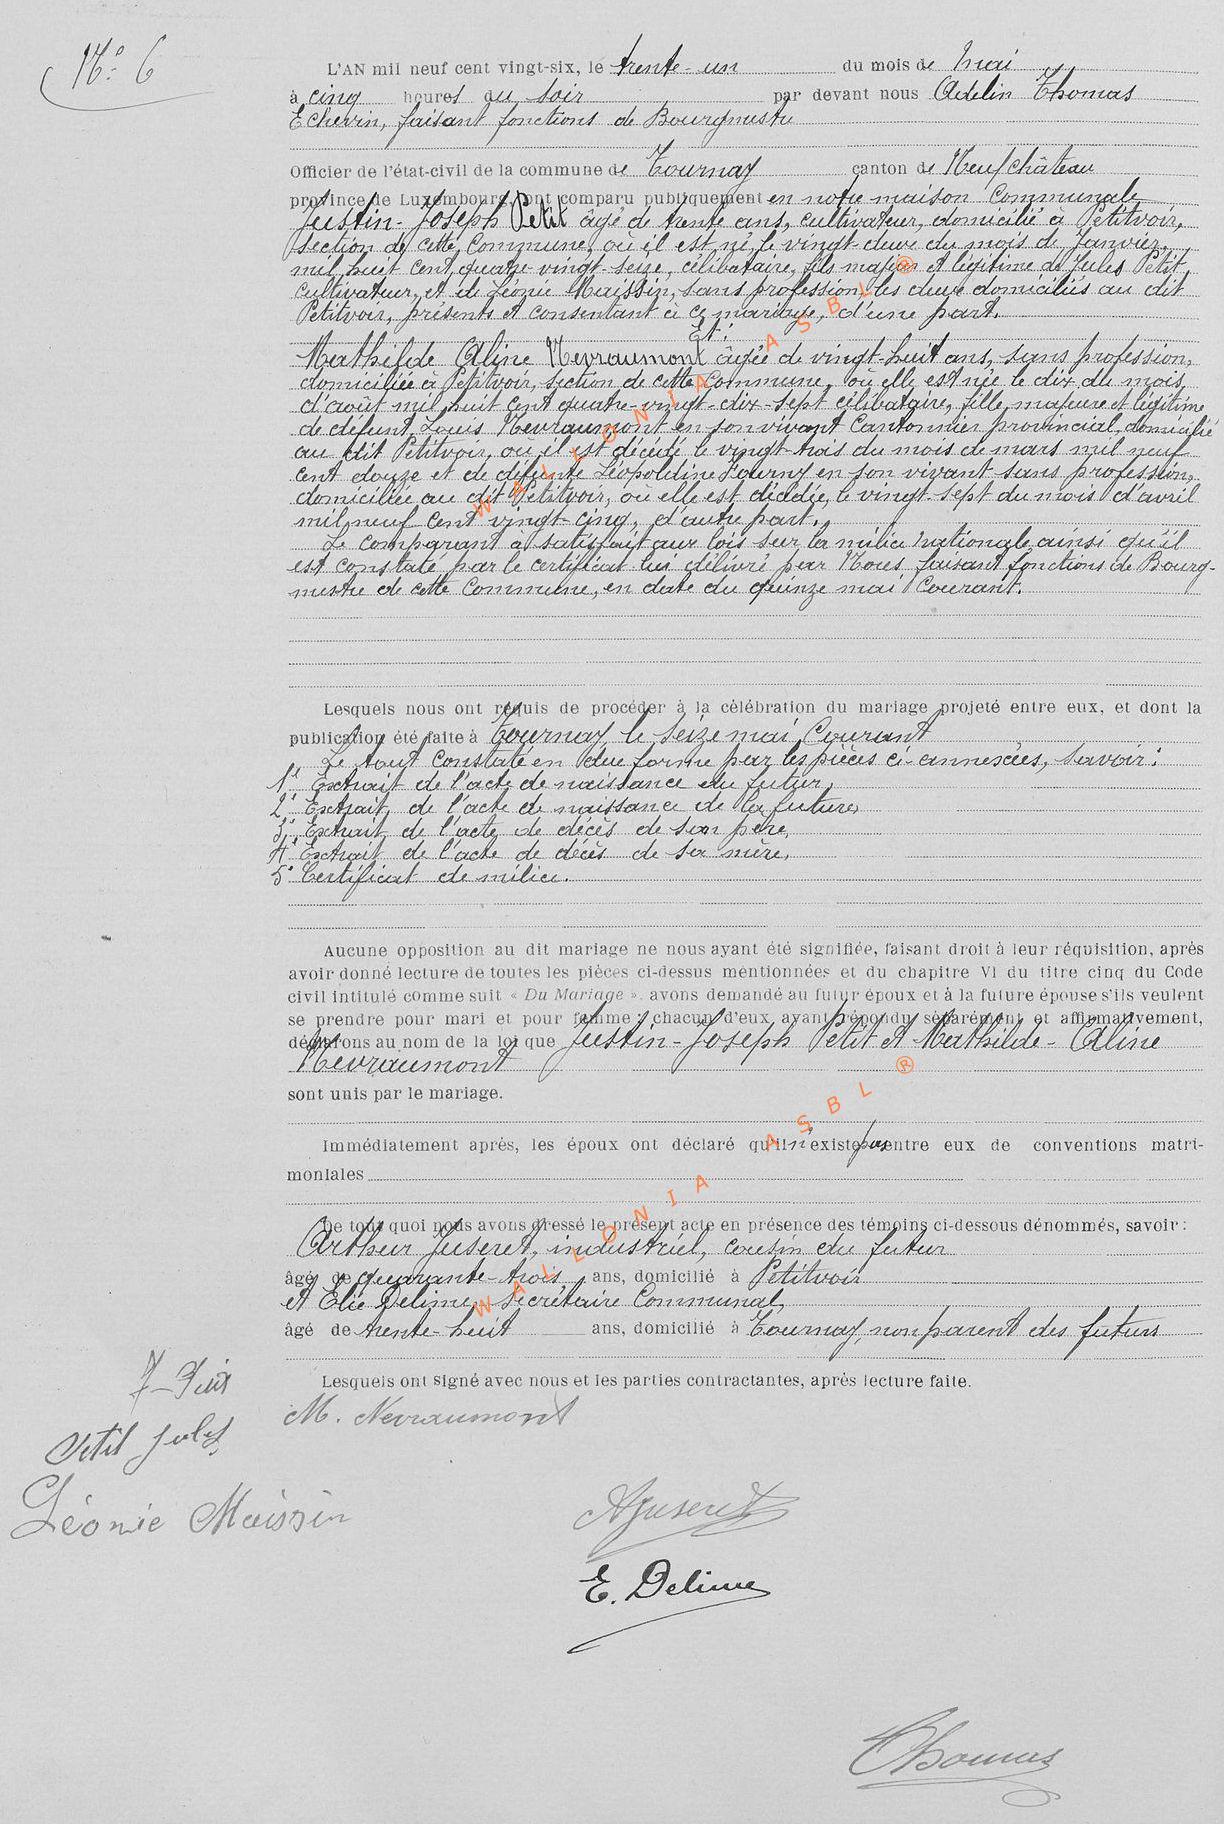 N° 6
L'AN mil neuf cent vingt-six, le trente-un du mois de mai
à cinq heures du soir par devant nous Adelin Thomas
Echevin, faisant fonctions de Bourgmestre
Officier de l'état-civil de la commune de Tournay canton de Neufchâteau
province de Luxembourg, ont comparu publiquement en notre maison communale
Justin-Joseph Petit âgé de trente ans, cultivateur, domicilié à Petitvoir,
section de cette commune, où il est né, le vingt-deux du mois de Janvier,
mil huit cent quatre-vingt-seize, célibataire, fils majeur et légitime de Jules Petit,
cultivateur, et de Léonie Maissin, sans profession, les deux domiciliés au dit
Petitvoir, présents et consentant à ce mariage, d'une part.
Et:
Mathilde Aline Nevraumont âgée de vingt-huit ans, sans profession,
domiciliée à Petitvoir, section de cette commune, où elle est née le dix du mois
d'août mil huit cent quatre-vingt-dix-sept célibataire, fille majeure et légitime
de défunt Louis Nevraumont en son vivant Cantonnier provincial, domicilié
au dit Petitvoir, où il est décédé le vingt-trois du mois de mars mil neuf
cent douze et de défunte Léopoldine Fourny en son vivant sans profession,
domiciliée au dit Petitvoir, où elle est décédée, le vingt-sept du mois d'avril
mil neuf cent vingt-cinq, d'autre part.
Le comparant a satisfait aux lois sur la milice nationale ainsi qu'il
est constaté par le certificat lui délivré par Nous faisant fonctions de Bourg-
mestre de cette Commune, en date du quinze mai Courant.
Lesquels nous ont requis de procéder à la célébration du mariage projeté entre eux, et dont la
publication été faite à Tournay le seize mai Courant
Le tout constaté en due forme par les pièces ci-annexées, savoir:
1° Extrait de l'acte de naissance du futur,
2° Extrait de l'acte de naissance de la future,
3° Extrait de l'acte de décès de son père,
4° Extrait de l'acte de décès de sa mère,
5° Certificat de milice.
Aucune opposition au dit mariage ne nous ayant été signifiée, faisant droit à leur réquisition, après
avoir donné lecture de toutes les pièces ci-dessus mentionnées et du chapitre VI du titre cinq du Code
civil intitulé comme suit « Du Mariage », avons demandé au futur époux et à la future épouse s'ils veulent
se prendre pour mari et pour femme; chacun d'eux ayant répondu séparément et affirmativement,
déclarons au nom de la loi que Justin-Joseph Petit et Mathilde-Aline
Nevraumont
sont unis par le mariage.
Immédiatement après, les époux ont déclaré qu'il n'existe pas entre eux de conventions matri-
moniales
De tout quoi nous avons dressé le présent acte en présence des témoins ci-dessous dénommés, savoir:
Arthur Juseret, industriel, cousin du futur
âgé de quarante-trois ans, domicilié à Petitvoir
et Elie Delime, secrétaire Communal,
âgé de trente-huit ans, domicilié à Tournay, non parent des futurs
Lesquels ont signé avec nous et les parties contractantes, après lecture faite.
M. Nevraumont
Petit Jules
Léonie Maissin
A Juseret
E. Delime
Thomas
WALLONIA ASBL ®
WALLONIA ASBL ®